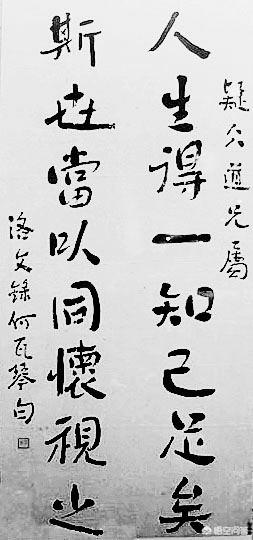 疑仌道兄屬
人生得一知己足矣
斯世當以同懷視之
洛文錄何瓦琴句
悟空问答